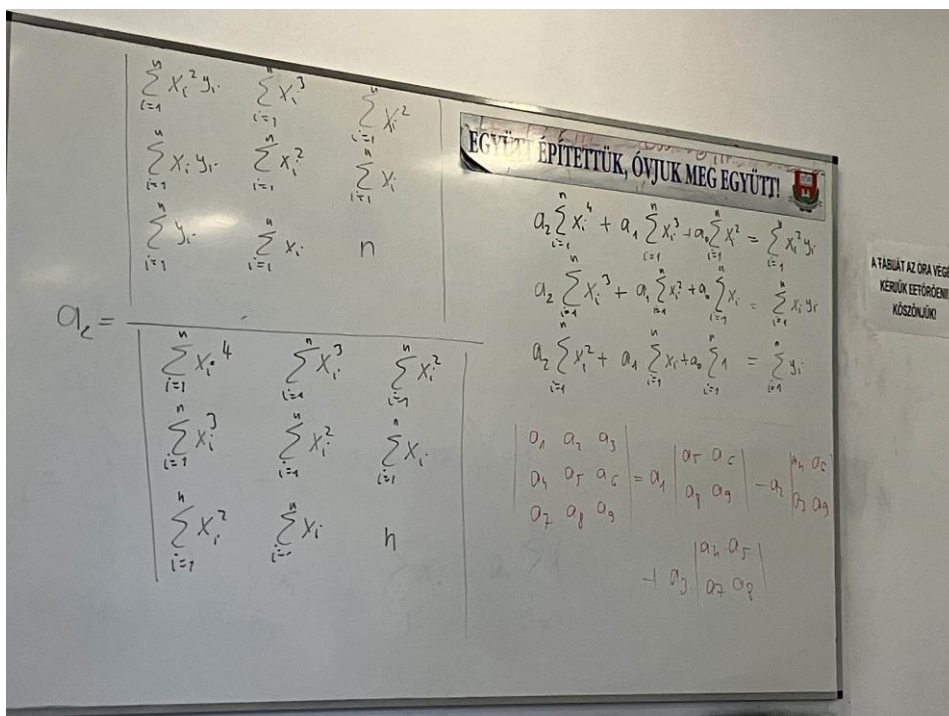 ∑_{i=1}^{n} x_i^2 y_i  ∑_{i=1}^{n} x_i^3  ∑_{i=1}^{n} x_i^2
∑_{i=1}^{n} x_i y_i  ∑_{i=1}^{n} x_i^2  ∑_{i=1}^{n} x_i
∑_{i=1}^{n} y_i  ∑_{i=1}^{n} x_i  n
a_2 =
∑_{i=1}^{n} x_i^4  ∑_{i=1}^{n} x_i^3  ∑_{i=1}^{n} x_i^2
∑_{i=1}^{n} x_i^3  ∑_{i=1}^{n} x_i^2  ∑_{i=1}^{n} x_i
∑_{i=1}^{n} x_i^2  ∑_{i=1}^{n} x_i  n
EGYÜTT ÉPÍTETTÜK, ÓVJUK MEG EGYÜTT!
a_2 ∑_{i=1}^{n} x_i^4 + a_1 ∑_{i=1}^{n} x_i^3 + a_0 ∑_{i=1}^{n} x_i^2 = ∑_{i=1}^{n} x_i^2 y_i
a_2 ∑_{i=1}^{n} x_i^3 + a_1 ∑_{i=1}^{n} x_i^2 + a_0 ∑_{i=1}^{n} x_i = ∑_{i=1}^{n} x_i y_i
a_2 ∑_{i=1}^{n} x_i^2 + a_1 ∑_{i=1}^{n} x_i + a_0 ∑_{i=1}^{n} 1 = ∑_{i=1}^{n} y_i
| a_1 a_2 a_3 |   | a_5 a_6 |   | a_4 a_6 |
| a_4 a_5 a_6 | = a_1 | | - a_2 | |
| a_7 a_8 a_9 |   | a_8 a_9 |   | a_7 a_9 |
+ a_3 | a_4 a_5 |
| a_7 a_8 |
A TÁBLÁT AZ ÓRA VÉGÉ
KÉRJÜK LETÖRÖLNI!
KÖSZÖNJÜK!